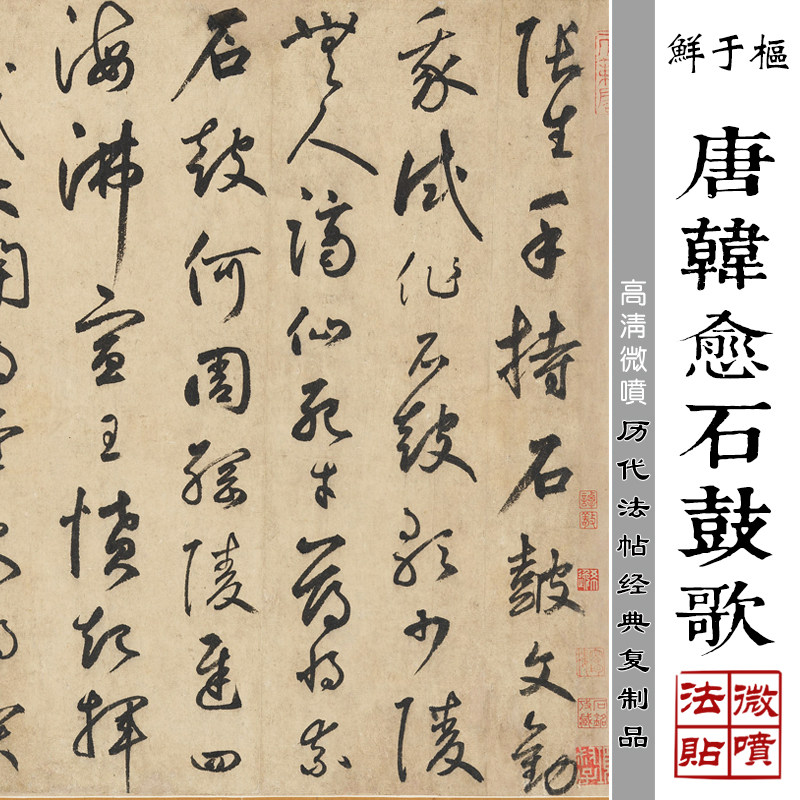 鮮于樞
唐韓愈石鼓歌
微噴
法貼
高清微噴
历代法帖经典复制品
張生手持石鼓文勸
我試作石鼓歌少陵
無人謫仙死才薄将奈
石鼓何周綱陵遲四
海沸宣王憤起揮